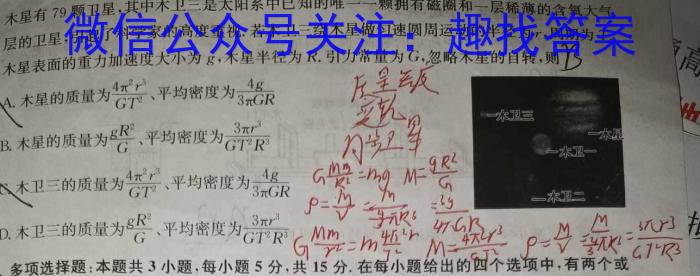 木星有79颗卫星,其中木卫三是太阳系中已知的唯一一颗拥有磁圈和一层稀薄的含氧大气
层的卫星,引起了科学家的高度重视。若木卫三绕木星做匀速圆周运动的半径为r,周期为T,
微信公众号关注:趣找答案
木星表面的重力加速度大小为g,木星半径为R,引力常量为G,忽略木星的自转,则 B
A. 木星的质量为4π²r³/GT²、平均密度为4g/3πGR
B. 木星的质量为gR²/G、平均密度为3πr³/GT²R³
C. 木卫三的质量为4π²r³/GT²、平均密度为4g/3πGR
D. 木卫三的质量为gR²/G、平均密度为3πr³/GT²R³
木卫三
木星
木卫一
木卫二
G Mm/R²=mg M=gR²/G
ρ=M/V=M/(4/3πR³)=3g/4πGR
G Mm/r²=m4π²r/T² M=4π²r³/GT² ρ=M/V=M/(4/3πR³)=3πr³/GT²R³
多项选择题:本题共3小题,每小题5分,共15分.在每小题给出的四个选项中,有两个或